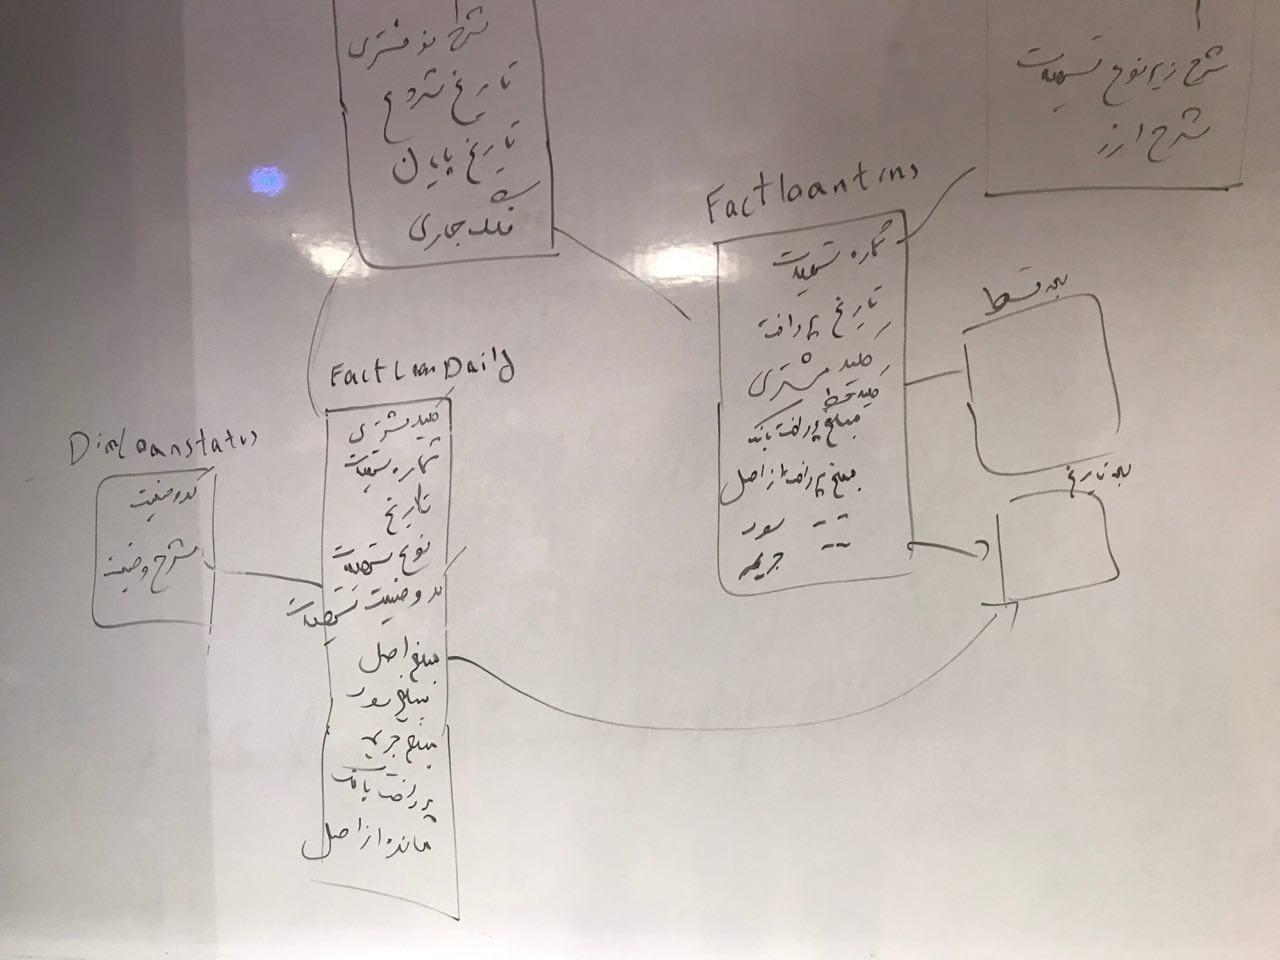 شرح نوع مشتری
تاریخ شروع
تاریخ پایان
فلگ جاری
شرح زیر نوع تسهیلات
شرح ارز
Factloantrns
شماره تسهیلات
تاریخ پرداخت
کلید مشتری
کلید قسط
مبلغ پرداخت بانک
مبلغ پرداخت از اصل
-- سود
-- جریمه
بعد قسط
بعد تاریخ
FactLoanDaily
کلید مشتری
شماره تسهیلات
تاریخ
نوع تسهیلات
کد وضعیت تسهیلات
مبلغ اصل
مبلغ سود
مبلغ جریمه
پرداخت بانک
مانده از اصل
DimLoanstatus
کد وضعیت
شرح وضعیت